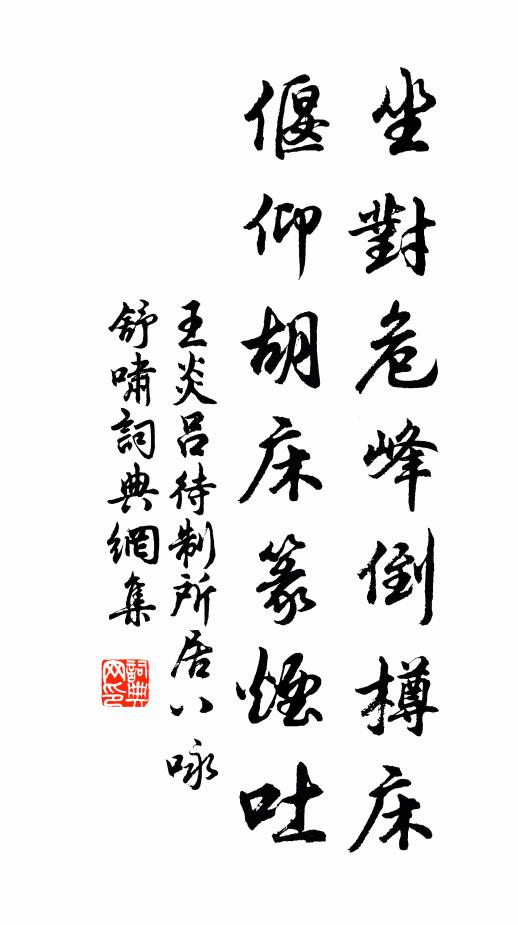 坐對危峰倒樽床
偃仰胡床篆煙吐
王炎呂待制所居八咏
舒嘯詞典網集
詞典網印